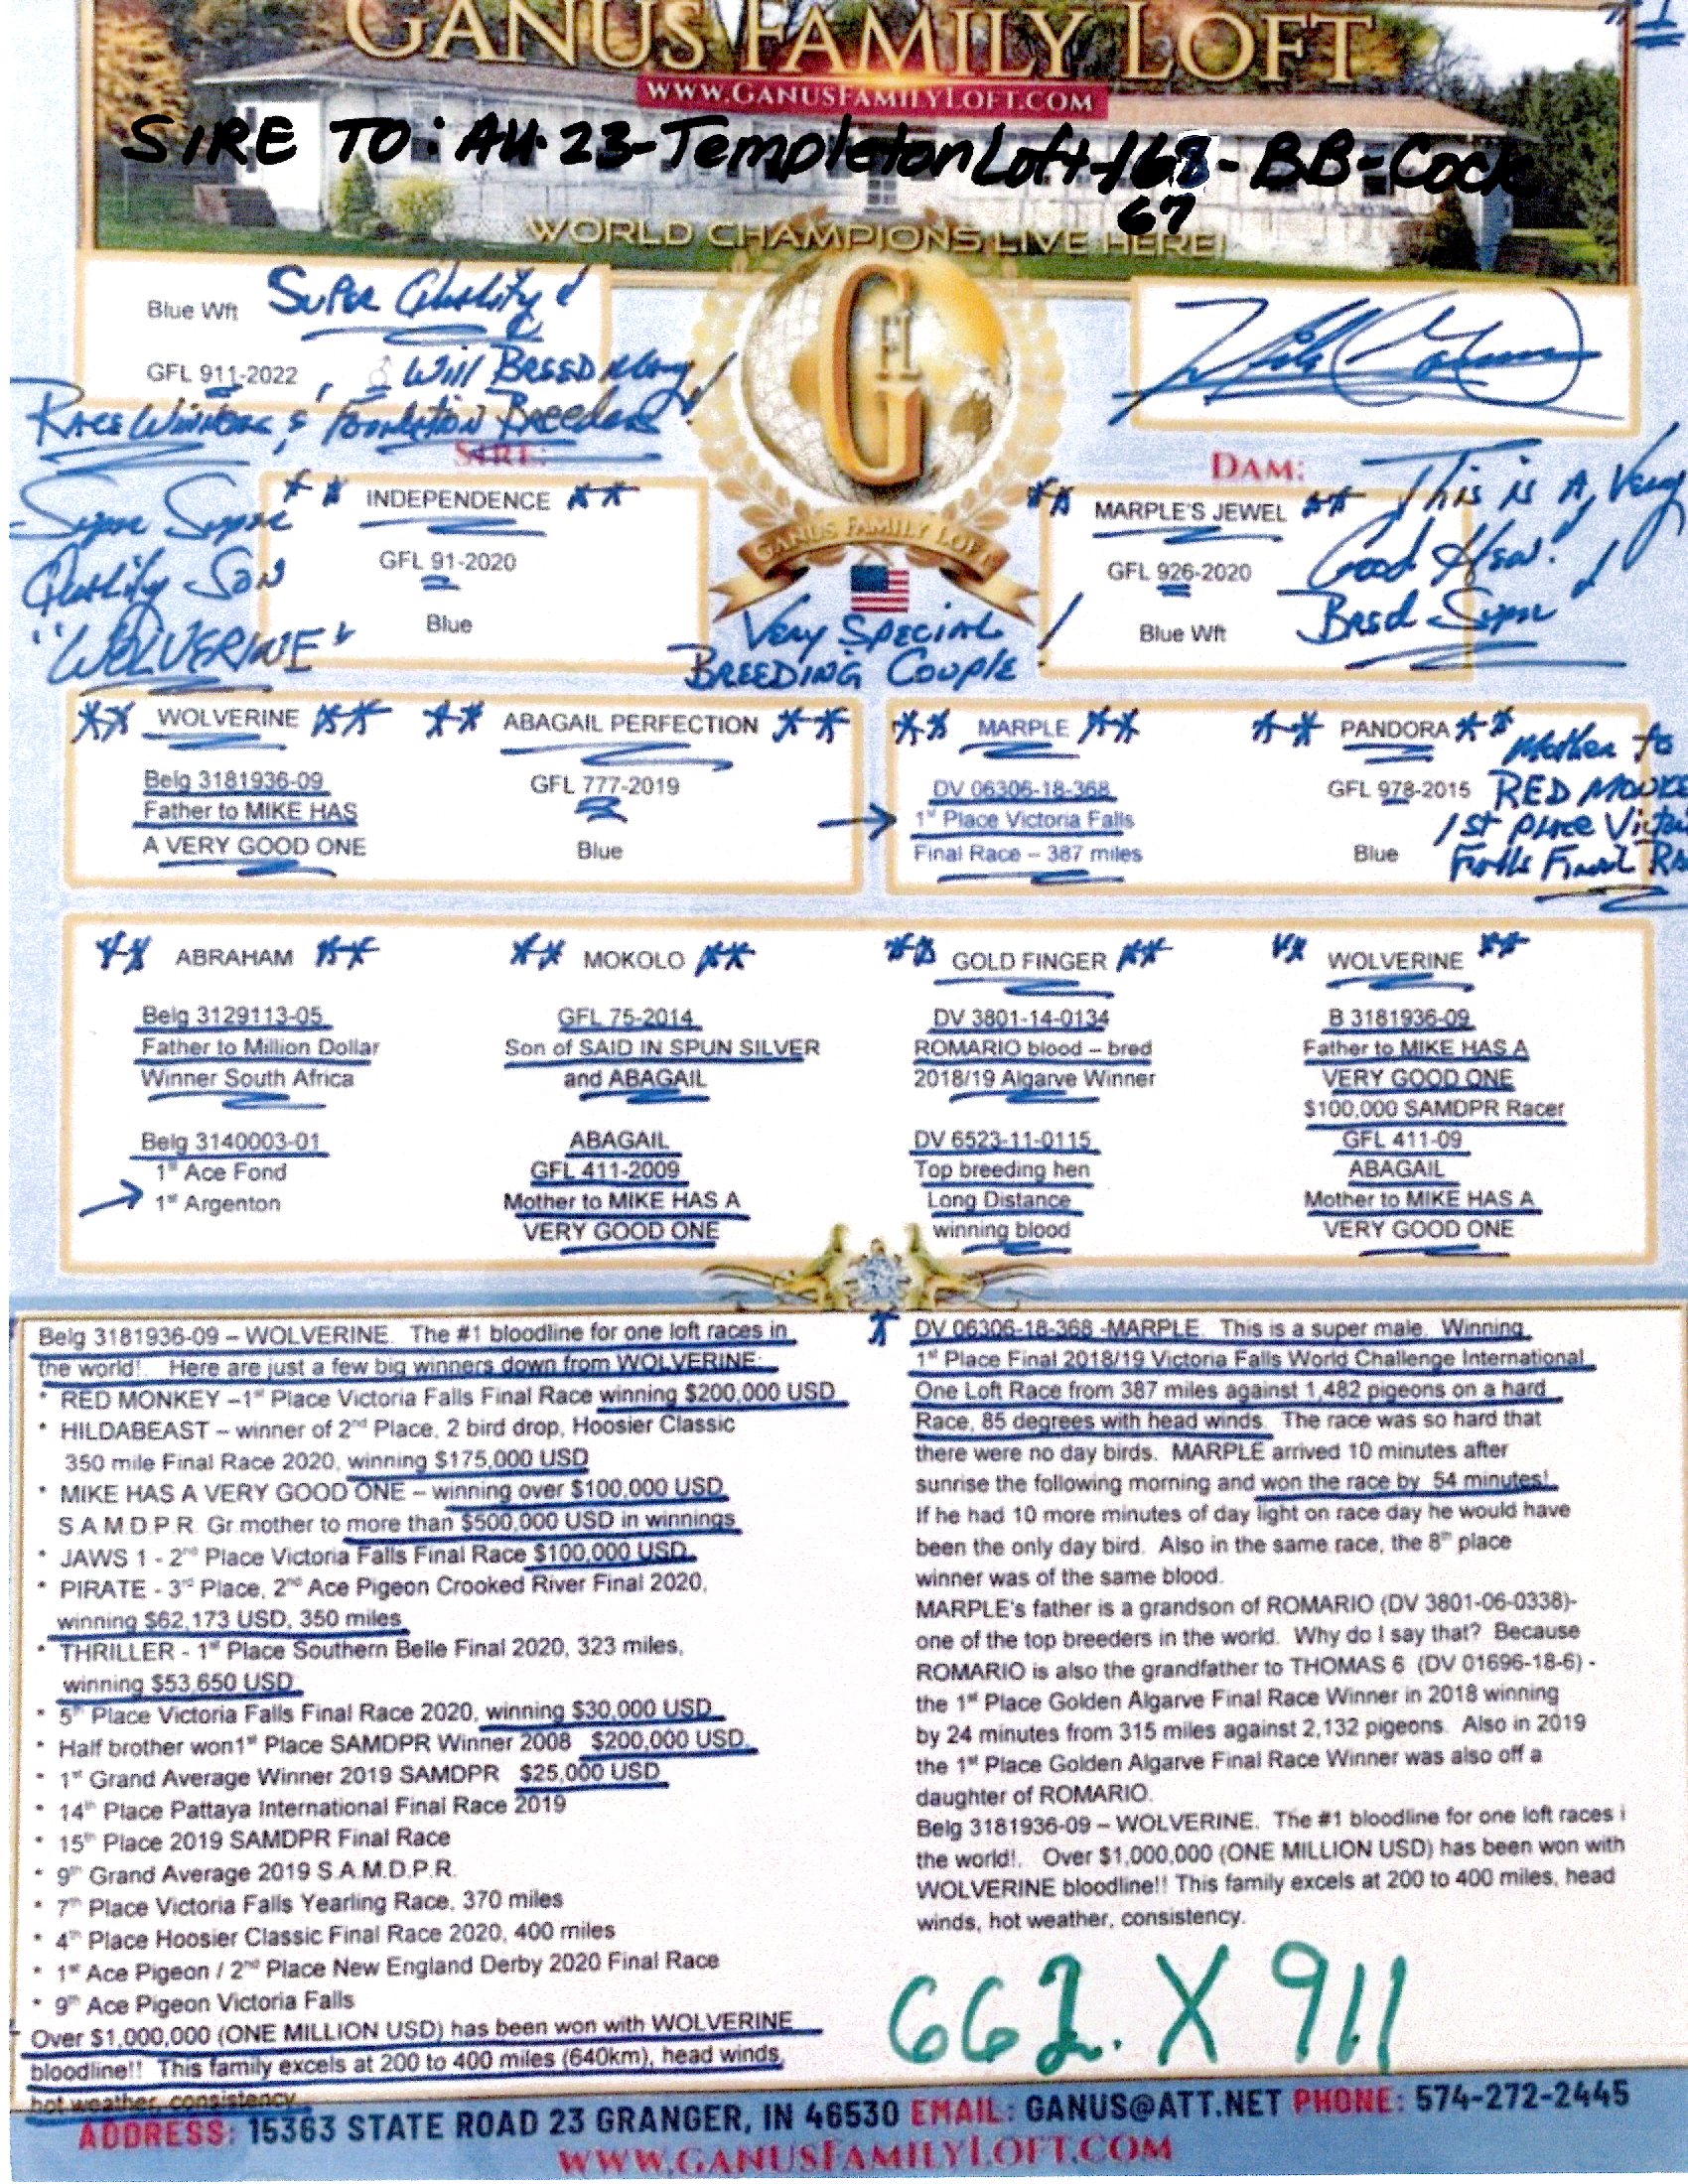 GANUS FAMILY LOFT
WWW.GANUSFAMILYLOFT.COM
SIRE TO: AU-23-Templeton Loft-168-BB-Cock
67
WORLD CHAMPIONS LIVE HERE!
Blue Wft Super Quality!
GFL 911-2022, ♂ Will Breed Many!
Race Winners & Foundation Breeders!
SIRE:
DAM:
GFL
GANUS FAMILY LOFT
** INDEPENDENCE **
GFL 91-2020
Blue
Super Super
Quality Son
"WOLVERINE"
** MARPLE'S JEWEL **
GFL 926-2020
Blue Wft
This is A Very
Good Hen!
Bred Super!
Very Special
BREEDING Couple!
** WOLVERINE **
Belg 3181936-09
Father to MIKE HAS
A VERY GOOD ONE
** ABAGAIL PERFECTION **
GFL 777-2019
Blue
** MARPLE **
DV 06306-18-368
1st Place Victoria Falls
Final Race – 387 miles
** PANDORA **
GFL 978-2015
Blue
Mother to
RED
1st Place
Falls Final
** ABRAHAM **
Belg 3129113-05
Father to Million Dollar
Winner South Africa
Belg 3140003-01
1st Ace Fond
1st Argenton
** MOKOLO **
GFL 75-2014
Son of SAID IN SPUN SILVER
and ABAGAIL
ABAGAIL
GFL 411-2009
Mother to MIKE HAS A
VERY GOOD ONE
** GOLD FINGER **
DV 3801-14-0134
ROMARIO blood – bred
2018/19 Algarve Winner
DV 6523-11-0115
Top breeding hen
Long Distance
winning blood
** WOLVERINE **
B 3181936-09
Father to MIKE HAS A
VERY GOOD ONE
$100,000 SAMDPR Racer
GFL 411-09
ABAGAIL
Mother to MIKE HAS A
VERY GOOD ONE
Belg 3181936-09 – WOLVERINE. The #1 bloodline for one loft races in
the world! Here are just a few big winners down from WOLVERINE:
* RED MONKEY –1st Place Victoria Falls Final Race winning $200,000 USD
* HILDABEAST – winner of 2nd Place, 2 bird drop, Hoosier Classic
350 mile Final Race 2020, winning $175,000 USD
* MIKE HAS A VERY GOOD ONE – winning over $100,000 USD
S.A.M.D.P.R. Gr.mother to more than $500,000 USD in winnings
* JAWS 1 - 2nd Place Victoria Falls Final Race $100,000 USD.
* PIRATE - 3rd Place, 2nd Ace Pigeon Crooked River Final 2020,
winning $62,173 USD, 350 miles
* THRILLER - 1st Place Southern Belle Final 2020, 323 miles,
winning $53,650 USD
* 5th Place Victoria Falls Final Race 2020, winning $30,000 USD
* Half brother won1st Place SAMDPR Winner 2008 $200,000 USD.
* 1st Grand Average Winner 2019 SAMDPR $25,000 USD
* 14th Place Pattaya International Final Race 2019
* 15th Place 2019 SAMDPR Final Race
* 9th Grand Average 2019 S.A.M.D.P.R.
* 7th Place Victoria Falls Yearling Race, 370 miles
* 4th Place Hoosier Classic Final Race 2020, 400 miles
* 1st Ace Pigeon / 2nd Place New England Derby 2020 Final Race
* 9th Ace Pigeon Victoria Falls
Over $1,000,000 (ONE MILLION USD) has been won with WOLVERINE
bloodline!! This family excels at 200 to 400 miles (640km), head winds,
hot weather, consistency.
* DV 06306-18-368 -MARPLE. This is a super male. Winning
1st Place Final 2018/19 Victoria Falls World Challenge International
One Loft Race from 387 miles against 1,482 pigeons on a hard
Race, 85 degrees with head winds. The race was so hard that
there were no day birds. MARPLE arrived 10 minutes after
sunrise the following morning and won the race by 54 minutes!
If he had 10 more minutes of day light on race day he would have
been the only day bird. Also in the same race, the 8th place
winner was of the same blood.
MARPLE's father is a grandson of ROMARIO (DV 3801-06-0338)-
one of the top breeders in the world. Why do I say that? Because
ROMARIO is also the grandfather to THOMAS 6 (DV 01696-18-6) -
the 1st Place Golden Algarve Final Race Winner in 2018 winning
by 24 minutes from 315 miles against 2,132 pigeons. Also in 2019
the 1st Place Golden Algarve Final Race Winner was also off a
daughter of ROMARIO.
Belg 3181936-09 – WOLVERINE. The #1 bloodline for one loft races i
the world!. Over $1,000,000 (ONE MILLION USD) has been won with
WOLVERINE bloodline!! This family excels at 200 to 400 miles, head
winds, hot weather, consistency.
662. X 911
ADDRESS: 15363 STATE ROAD 23 GRANGER, IN 46530 EMAIL: GANUS@ATT.NET PHONE: 574-272-2445
WWW.GANUSFAMILYLOFT.COM